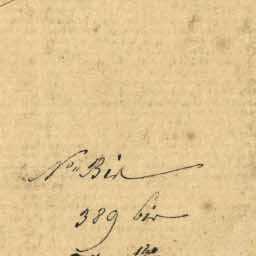 No Bir
389 bir